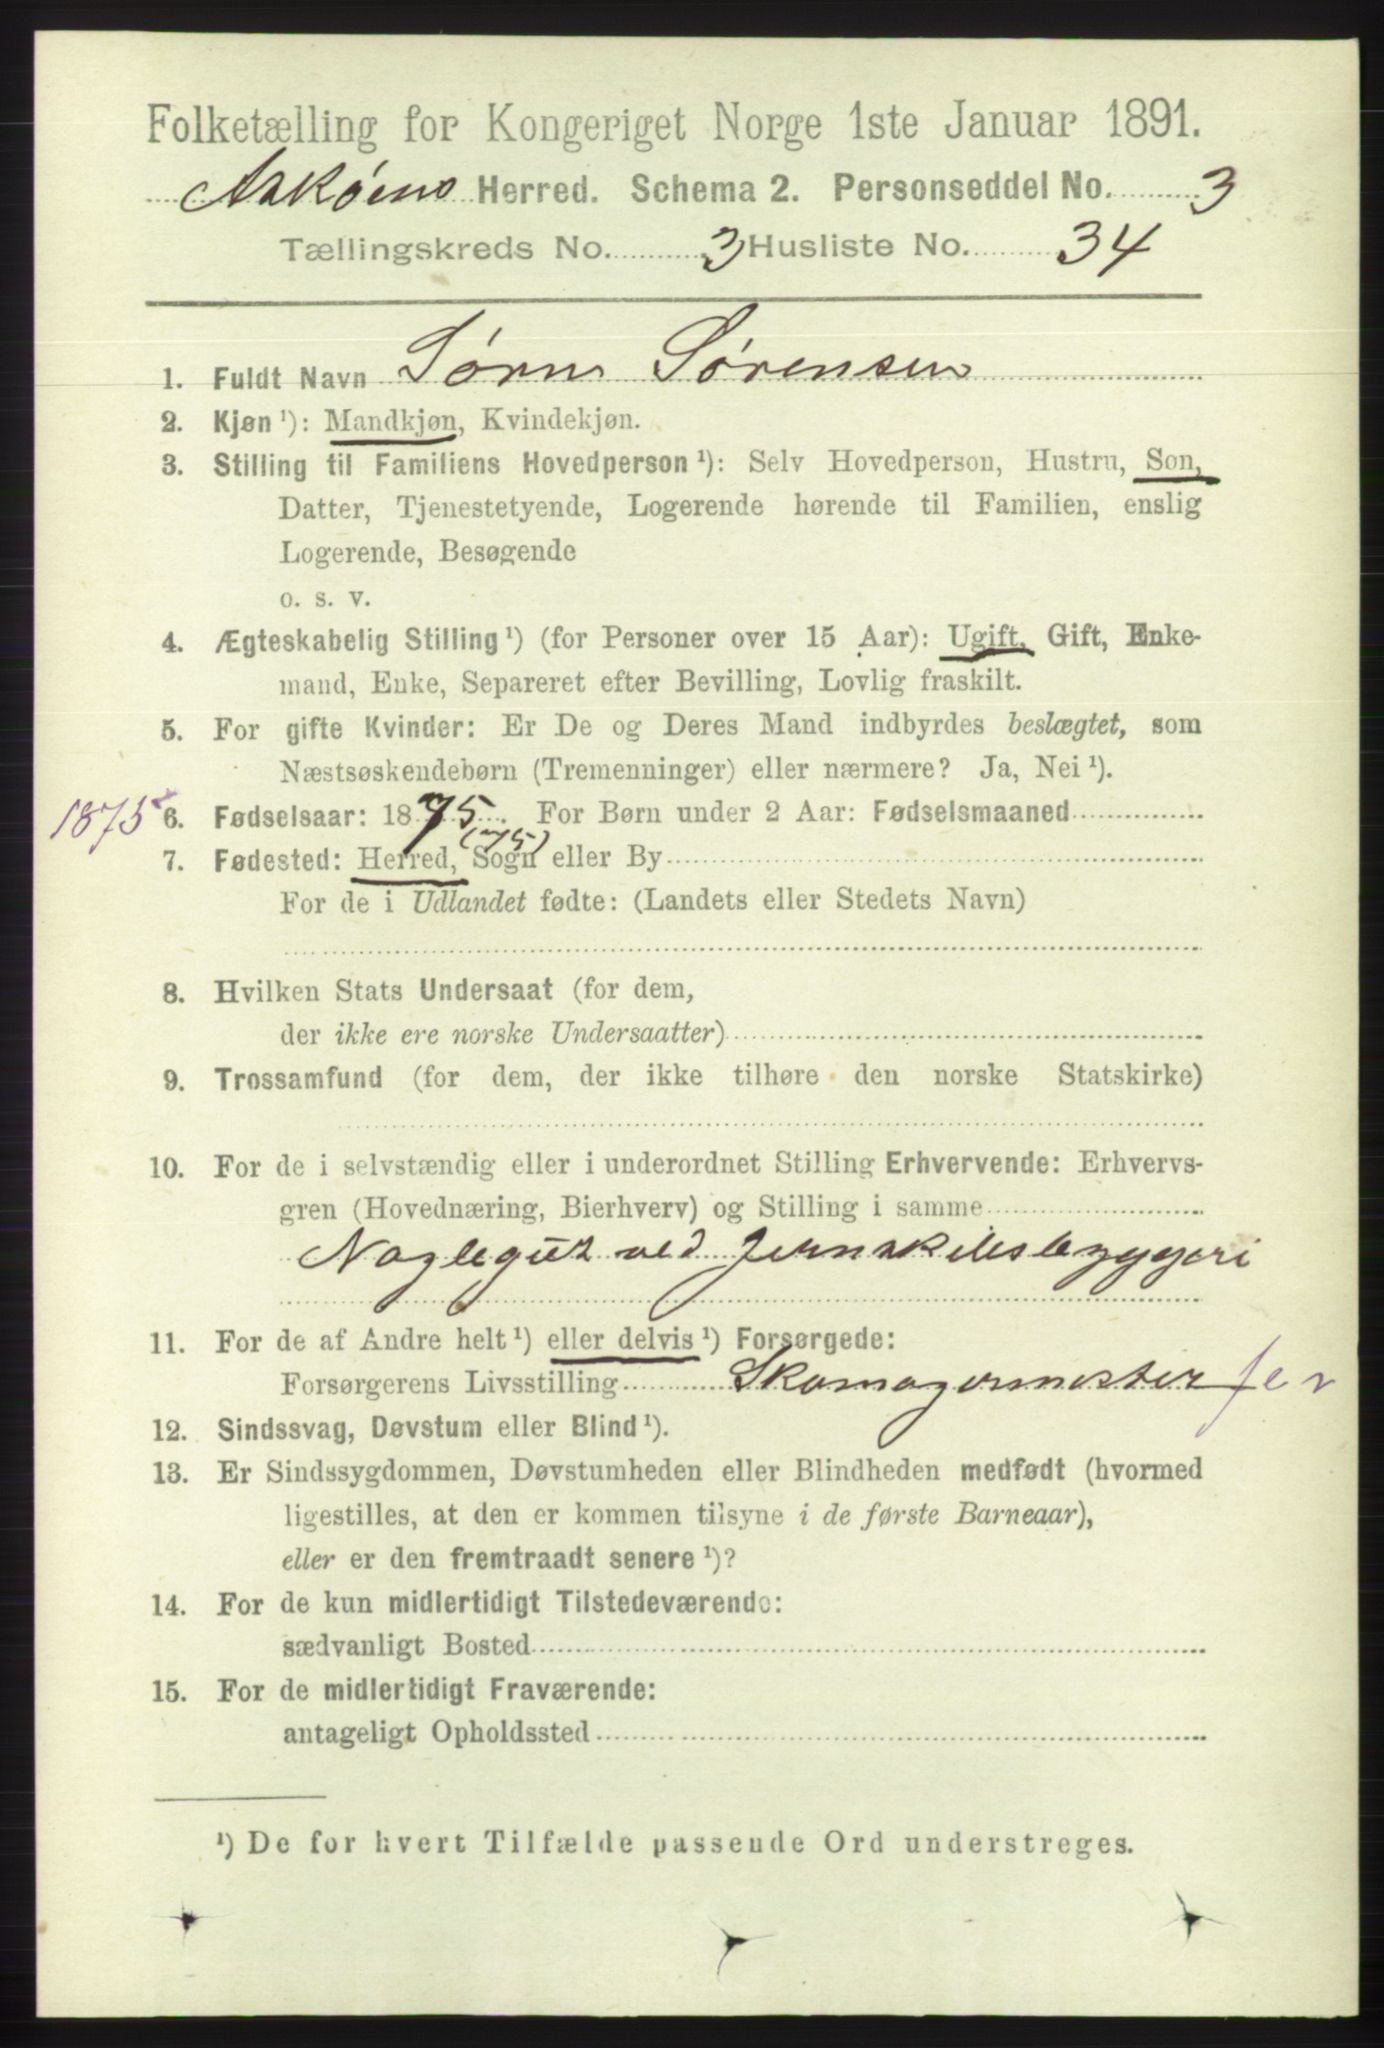 Folketælling for Kongeriget Norge 1ste Januar 1891.
Askøens Herred. Schema 2. Personseddel No. 3
Tællingskreds No. 3 Husliste No. 34
1. Fuldt Navn Sørn Sørensen
2. Kjøn ¹): Mandkjøn, Kvindekjøn.
3. Stilling til Familiens Hovedperson ¹): Selv Hovedperson, Hustru, Son,
Datter, Tjenestetyende, Logerende hørende til Familien, enslig
Logerende, Besøgende
o. s. v.
4. Ægteskabelig Stilling ¹) (for Personer over 15 Aar): Ugift, Gift, Enke-
mand, Enke, Separeret efter Bevilling, Lovlig fraskilt.
5. For gifte Kvinder: Er De og Deres Mand indbyrdes beslægtet, som
Næstsøskendebørn (Tremenninger) eller nærmere? Ja, Nei ¹).
1875 6. Fødselsaar: 1875. For Børn under 2 Aar: Fødselsmaaned
(75)
7. Fødested: Herred, Sogn eller By
For de i Udlandet fødte: (Landets eller Stedets Navn)
8. Hvilken Stats Undersaat (for dem,
der ikke ere norske Undersaatter)
9. Trossamfund (for dem, der ikke tilhøre den norske Statskirke)
10. For de i selvstændig eller i underordnet Stilling Erhvervende: Erhvervs-
gren (Hovednæring, Bierhverv) og Stilling i samme
Naglegut ved Jernskibsbyggeri
11. For de af Andre helt ¹) eller delvis ¹) Forsørgede:
Forsørgerens Livsstilling Skomagermester
12. Sindssvag, Døvstum eller Blind ¹).
13. Er Sindssygdommen, Døvstumheden eller Blindheden medfødt (hvormed
ligestilles, at den er kommen tilsyne i de første Barneaar),
eller er den fremtraadt senere ¹)?
14. For de kun midlertidigt Tilstedeværende:
sædvanligt Bosted
15. For de midlertidigt Fraværende:
antageligt Opholdssted
¹) De for hvert Tilfælde passende Ord understreges.